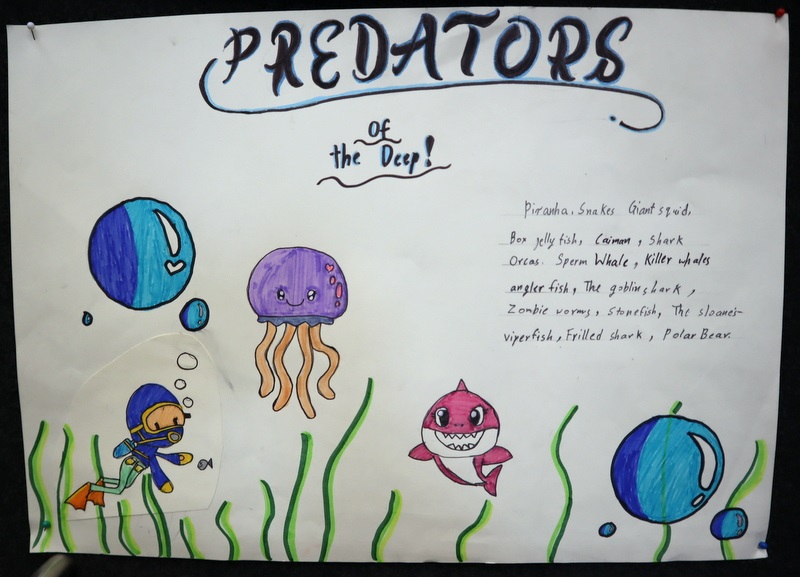 PREDATORS
of
the Deep!
Piranha, Snakes Giant squid,
Box jelly fish, Caiman, Shark
Orcas. Sperm Whale, Killer whales
angler fish, The goblin shark,
Zombie worms, Stonefish, The sloane's
viperfish, Frilled shark, Polar Bear.